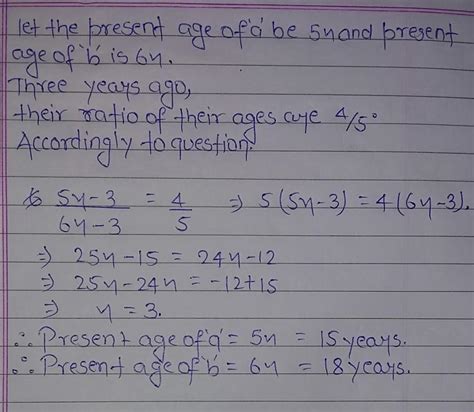 let the present age of 'a' be 5x and present
age of 'b' is 6x.
Three years ago,
their ratio of their ages are 4/5.
Accordingly to question,
5x-3/6x-3 = 4/5 ⇒ 5(5x-3) = 4(6x-3).
⇒ 25x-15 = 24x-12
⇒ 25x-24x = -12+15
⇒ x = 3.
∴ Present age of 'a' = 5x = 15 years.
∴ Present age of 'b' = 6x = 18 years.